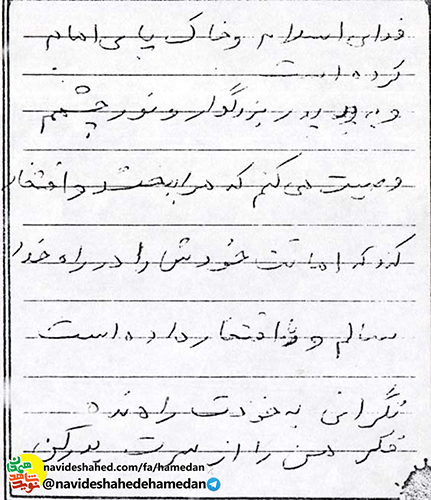 فدای اسلام و خاک پای امام
کرده است
و به پدر بزرگوار و نور چشمم
وصیت می کنم که مرا ببخشد و افتخار
کند که امانت خودش را در راه خدا
سالم و با افتخار داده است
نگرانی به خودت راه نده
فکر من را از سرت بدر کن
navideshahed.com/fa/hamedan
@navideshahedehamedan